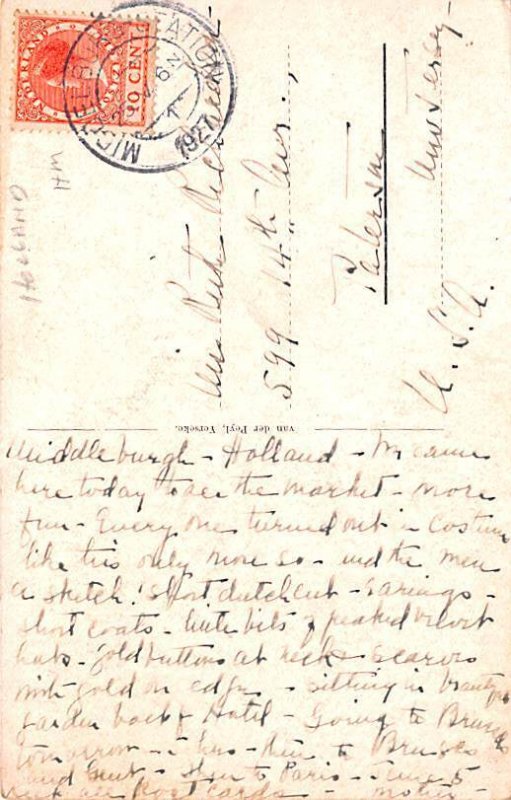 NEDERLAND
10 CENT
MIDDELBURG STATION
1927
HOLLAND
WH
Miss Ruth
599 14th Ave.,
Paterson
New Jersey
U. S. A.
van der Peyl, Yerseke.
Middleburgh - Holland - We came
here today to see the market - more
fun - Every one turned out in costume
like this only more so - and the men
a sketch! Short dutch cut - Earings -
short coats - little bits of peaked velvet
hats - gold buttons at neck & scarves
with gold on edge - sitting in beautiful
garden back of Hotel - Going to Brussels
tomorrow - then to Bruges
and Ghent - then to Paris - June 5
all Post cards - Mother -